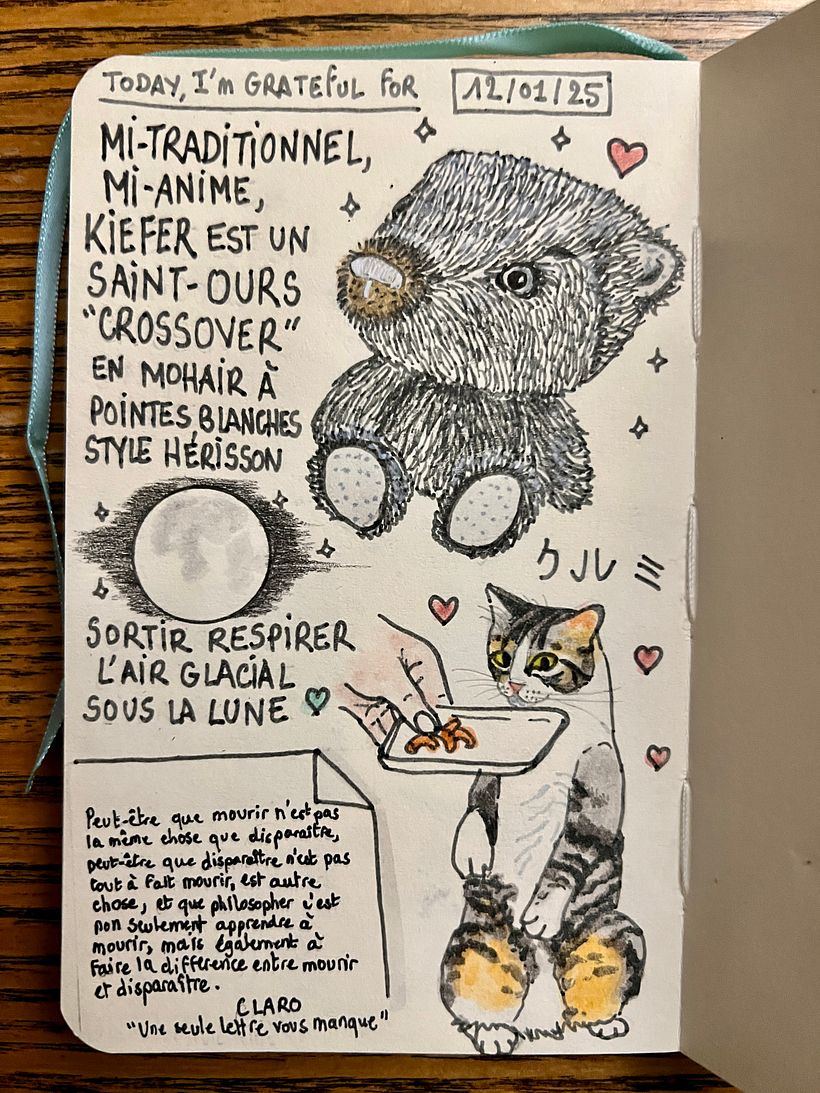 TODAY, I'm GRATEFUL FOR
12/01/25
Mi-TRADiTiONNEL,
Mi-ANiME,
KiEFER EST UN
SAiNT-OURS
"CROSSOVER"
EN MOHAIR À
POiNTES BLANCHES
STYLE HÉRiSSON
クル
SORTiR RESPiRER
L'AiR GLACiAL
SOUS LA LUNE
Peut-être que mourir n'est pas
la même chose que disparaître,
peut-être que disparaître n'est pas
tout à fait mourir, est autre
chose, et que philosopher c'est
non seulement apprendre à
mourir, mais également à
faire la différence entre mourir
et disparaître.
CLARO
"Une seule lettre vous manque"